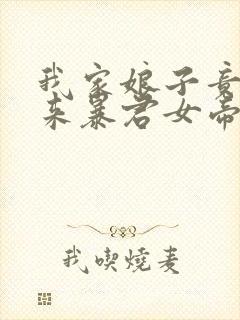 我家娘子竟
来暴君女帝
我喫燒麦